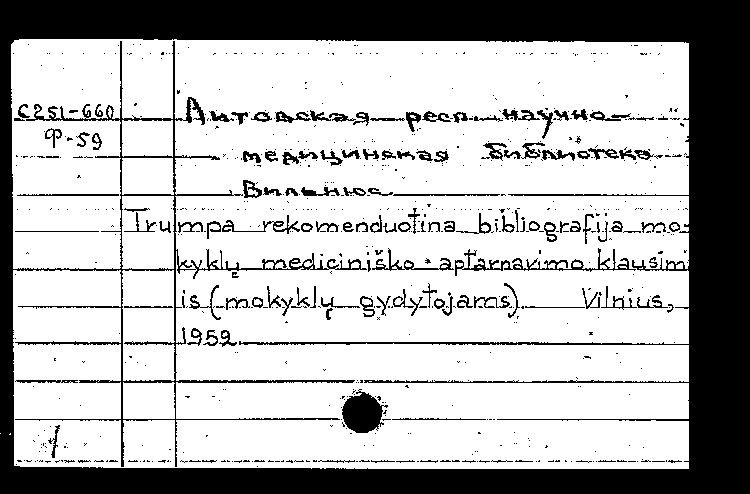 С251-660
Ф-59
Литовская респ. научно-
медицинская библиотека
Вильнюс
Trumpa rekomenduotina bibliografija mo-
kyklų mediciniško aptarnavimo klausim
is (mokyklų gydytojams). Vilnius,
1959.
1